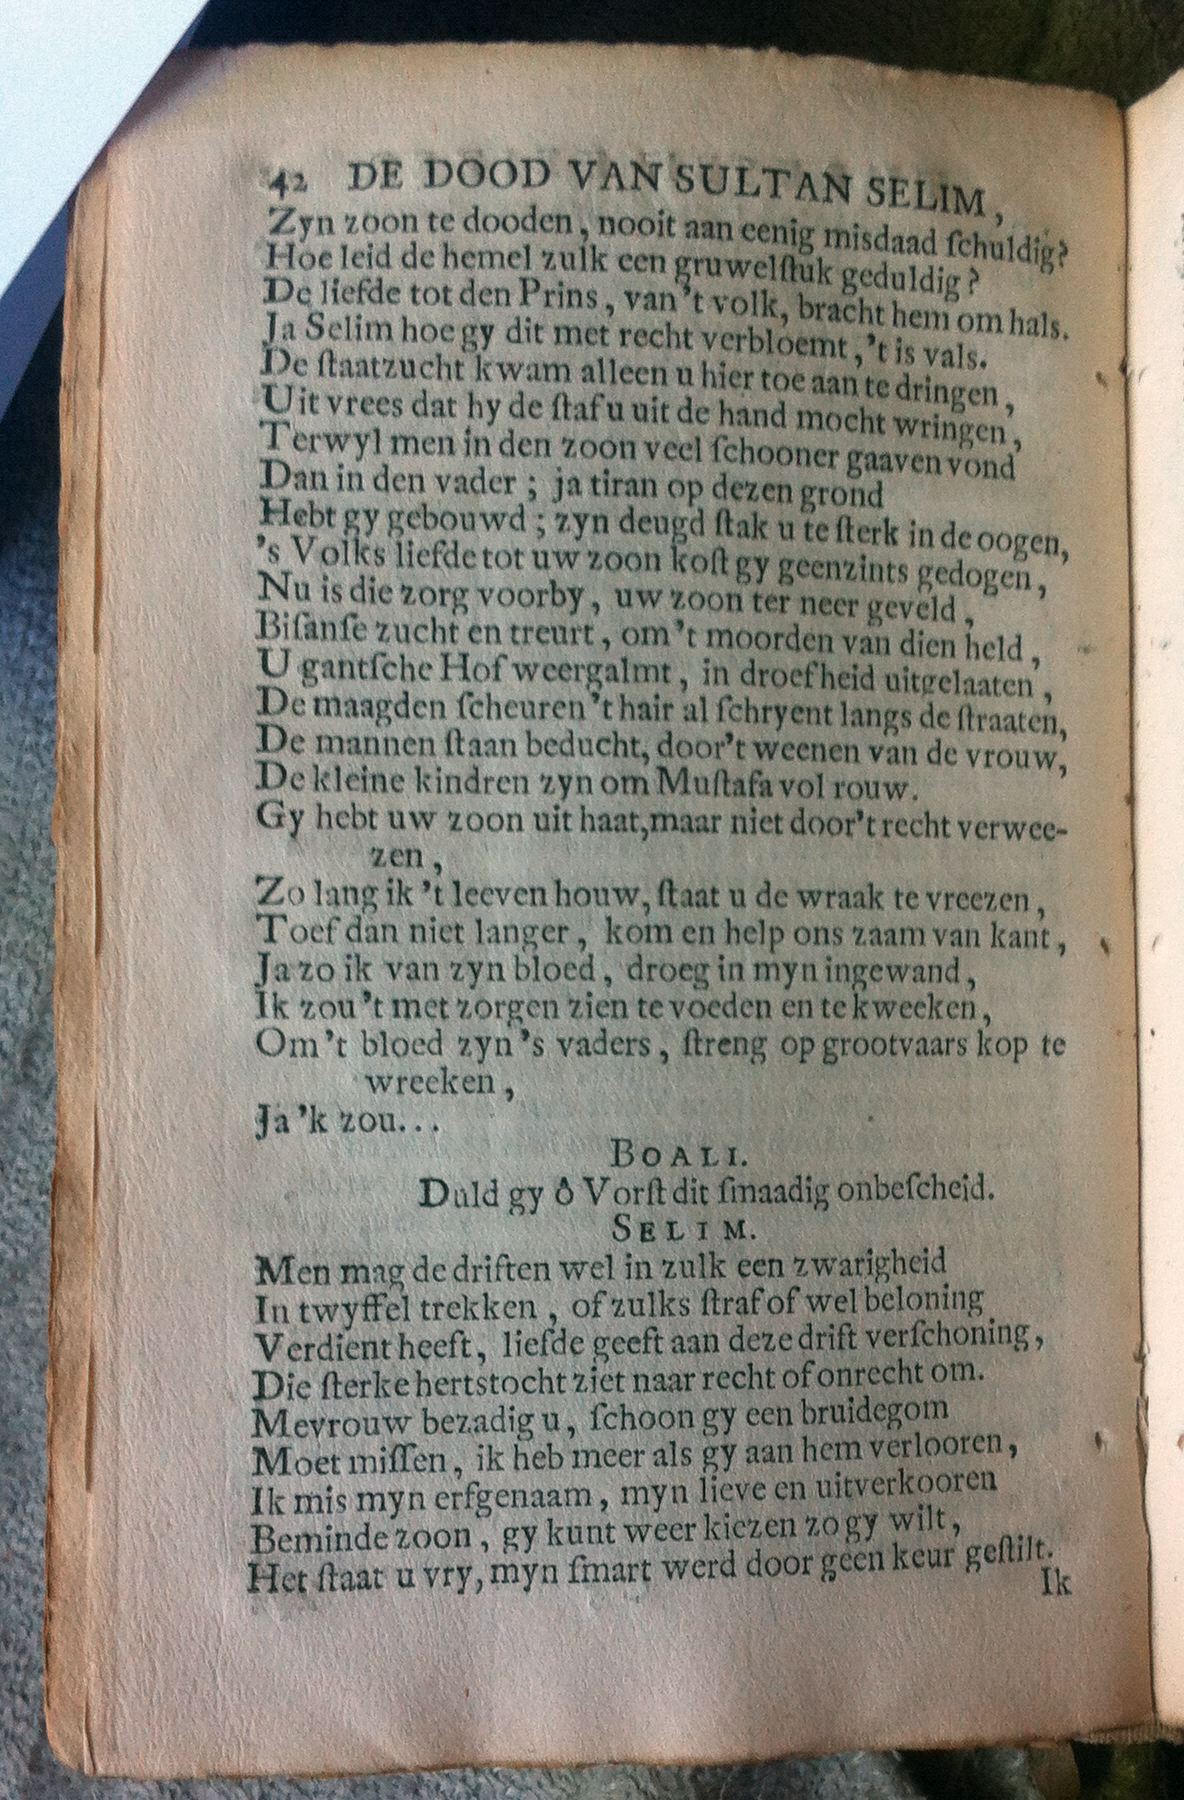 42 DE DOOD VAN SULTAN SELIM,
Zyn zoon te dooden, nooit aan eenig misdaad ſchuldig?
Hoe leid de hemel zulk een gruwelſtuk geduldig?
De liefde tot den Prins, van 't volk, bracht hem om hals.
Ja Selim hoe gy dit met recht verbloemt, 't is vals.
De ſtaatzucht kwam alleen u hier toe aan te dringen,
Uit vrees dat hy de ſtaf u uit de hand mocht wringen,
Terwyl men in den zoon veel ſchooner gaaven vond
Dan in den vader; ja tiran op dezen grond
Hebt gy gebouwd; zyn deugd ſtak u te ſterk in de oogen,
's Volks liefde tot uw zoon koſt gy geenzints gedogen,
Nu is die zorg voorby, uw zoon ter neer geveld,
Biſanſe zucht en treurt, om 't moorden van dien held,
U gantſche Hof weergalmt, in droefheid uitgelaaten,
De maagden ſcheuren 't hair al ſchryent langs de ſtraaten,
De mannen ſtaan beducht, door 't weenen van de vrouw,
De kleine kindren zyn om Muſtafa vol rouw.
Gy hebt uw zoon uit haat, maar niet door 't recht verwee-
zen,
Zo lang ik 't leeven houw, ſtaat u de wraak te vreezen,
Toef dan niet langer, kom en help ons zaam van kant,
Ja zo ik van zyn bloed, droeg in myn ingewand,
Ik zou 't met zorgen zien te voeden en te kweeken,
Om 't bloed zyn 's vaders, ſtreng op grootvaars kop te
wreeken,
Ja 'k zou...
BOALI.
Duld gy ô Vorſt dit ſmaadig onbeſcheid.
SELIM.
Men mag de driften wel in zulk een zwarigheid
In twyffel trekken, of zulks ſtraf of wel beloning
Verdient heeft, liefde geeft aan deze drift verſchoning,
Die ſterke hertstocht ziet naar recht of onrecht om.
Mevrouw bezadig u, ſchoon gy een bruidegom
Moet miſſen, ik heb meer als gy aan hem verlooren,
Ik mis myn erfgenaam, myn lieve en uitverkooren
Beminde zoon, gy kunt weer kiezen zo gy wilt,
Het ſtaat u vry, myn ſmart werd door geen keur geſtilt.
Ik